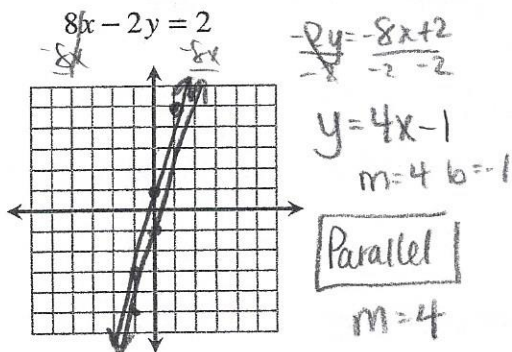 8x − 2y = 2
-8x -8x
-2y = -8x+2
-2 -2 -2
y=4x-1
m=4 b=-1
Parallel
m=4